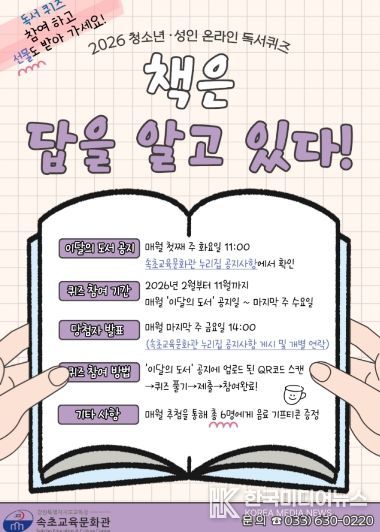 독서 퀴즈
참여 하고
선물도 받아 가세요!
2026 청소년·성인 온라인 독서퀴즈
책은
답을 알고 있다!
이달의 도서 공지 매월 첫째 주 화요일 11:00
속초교육문화관 누리집 공지사항에서 확인
퀴즈 참여 기간 2026년 2월부터 11월까지
매월 '이달의 도서' 공지일 ~ 마지막 주 수요일
당첨자 발표 매월 마지막 주 금요일 14:00
(속초교육문화관 누리집 공지사항 게시 및 개별 연락)
퀴즈 참여 방법 '이달의 도서' 공지에 업로드 된 QR코드 스캔
→퀴즈 풀기→제출→참여완료!
기타 사항 매월 추첨을 통해 총 6명에게 음료 기프티콘 증정
속초교육문화관
HK 한국미디어뉴스
KOREA MEDIA NEWS
문의 ☎ 033) 630-0220